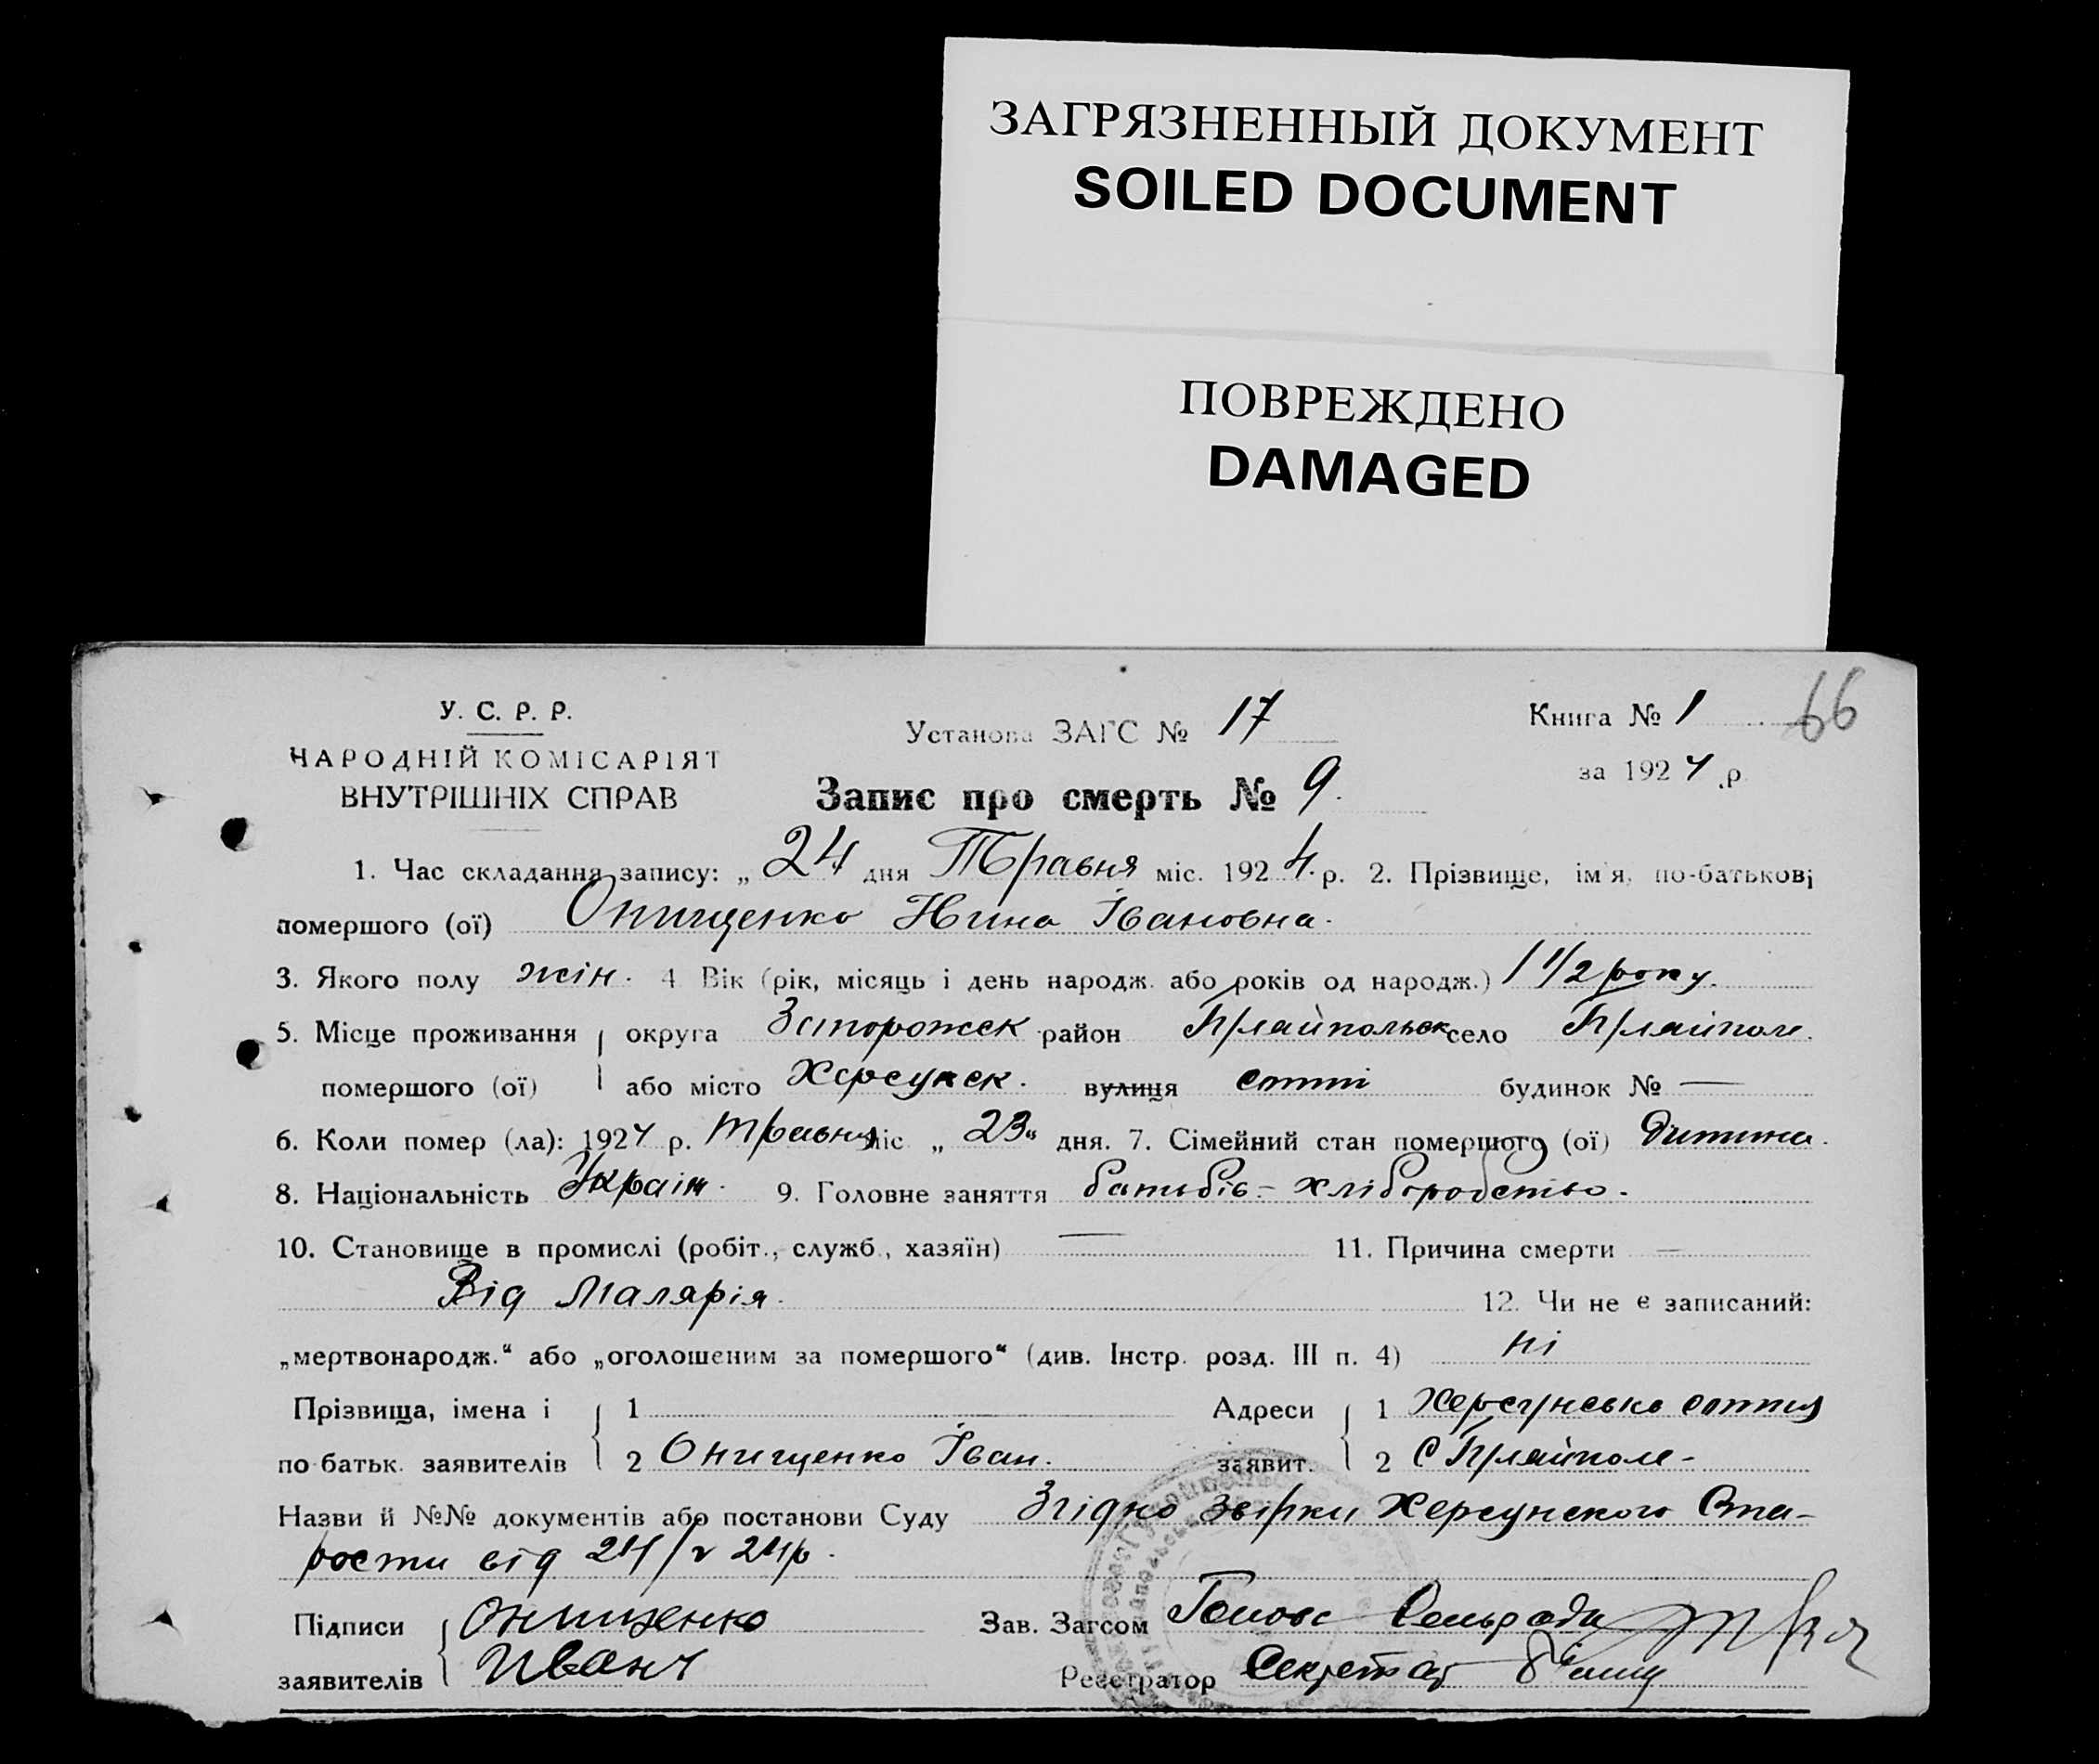 ЗАГРЯЗНЕННЫЙ ДОКУМЕНТ
SOILED DOCUMENT
ПОВРЕЖДЕНО
DAMAGED
У. С. Р. Р.
НАРОДНІЙ КОМІСАРІЯТ
ВНУТРІШНІХ СПРАВ
Установа ЗАГС № 17
Книга № 1 66
за 1924 р.
Запис про смерть № 9.
1. Час складання запису: „ 24 дня Травня міс. 1924. р. 2. Прізвище, ім'я, по-батькові
помершого (ої) Онищенко Нина Івановна.
3. Якого полу жін. 4 Вік (рік, місяць і день народж. або років од народж.) 1 1/2 року.
5. Місце проживання округа Запорожск район Пришиб село
помершого (ої) або місто Херсунск. вулиця сотні будинок № —
6. Коли помер (ла): 1924 р. Травня міс „ 23" дня. 7. Сімейний стан помершого (ої) Дитина.
8. Національність Україн. 9. Головне заняття батьків - хліборобство.
10. Становище в промислі (робіт., служб., хазяїн) — 11. Причина смерти —
Від Малярія. 12. Чи не є записаний:
„мертвонародж.“ або „оголошеним за помершого“ (див. Інстр. розд. III п. 4) ні
Прізвища, імена і 1 Адреси 1 Херсунська сотня
по батьк. заявителів 2 Онищенко Іван. заявит. 2 С
Назви й №№ документів або постанови Суду Згідно звірки Херсунского Ста-
рости від 24/V 24р.
Підписи Онищенко Зав. Загсом Голова Сельради
заявителів Иванъ Реєстратор Секретар